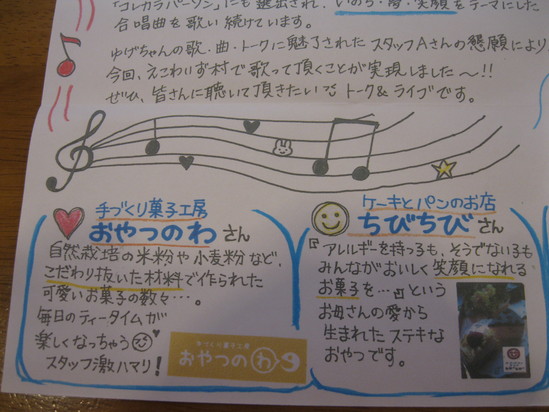 「コレカラパーソン」にも選出され、いのち・夢・笑顔をテーマにした
合唱曲を歌い続けています。
ゆげちゃんの歌・曲・トークに魅了されたスタッフAさんの懇願により
今回、えこわいず村で歌って頂くことが実現しました〜!!
ぜひ、皆さんに聴いて頂きたいトーク&ライブです。
手づくり菓子工房
おやつのわさん
自然栽培の米粉や小麦粉など、
こだわり抜いた材料で作られた
可愛いお菓子の数々…。
毎日のティータイムが
楽しくなっちゃう
スタッフ激ハマリ!
手づくり菓子工房
おやつのわ
ケーキとパンのお店
ちびちびさん
『アレルギーを持つ子も、そうでない子も
みんながおいしく笑顔になれる
お菓子を…』という
お母さんの愛から
生まれたステキな
おやつです。